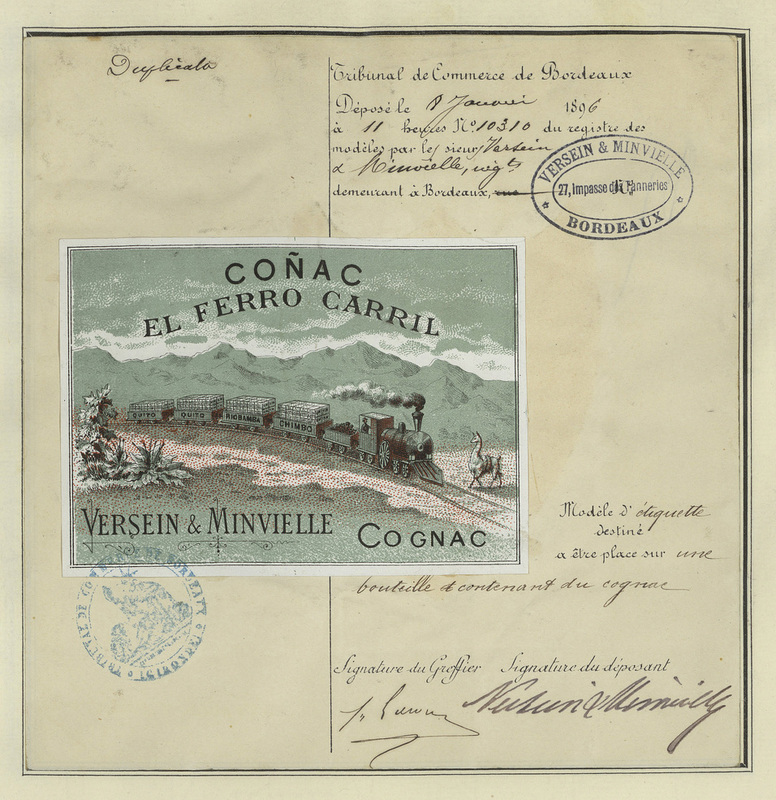 Duplicata
Tribunal de Commerce de Bordeaux
Déposé le 8 Janvier 1896
à 11 heures No. 10310 du registre des
modèles par les sieurs Versein
& Minvielle, négts
demeurant à Bordeaux, rue
VERSEIN & MINVIELLE
27, Impasse des Tanneries
BORDEAUX
COÑAC
EL FERRO CARRIL
QUITO QUITO RIOBAMBA CHIMBO
VERSEIN & MINVIELLE
COGNAC
Modèle d'étiquette
destiné
a être place sur une
bouteille contenant du cognac
TRIBUNAL DE COMMERCE DE BORDEAUX
(GIRONDE)
Signature du Greffier Signature du déposant
Versein & Minvielle